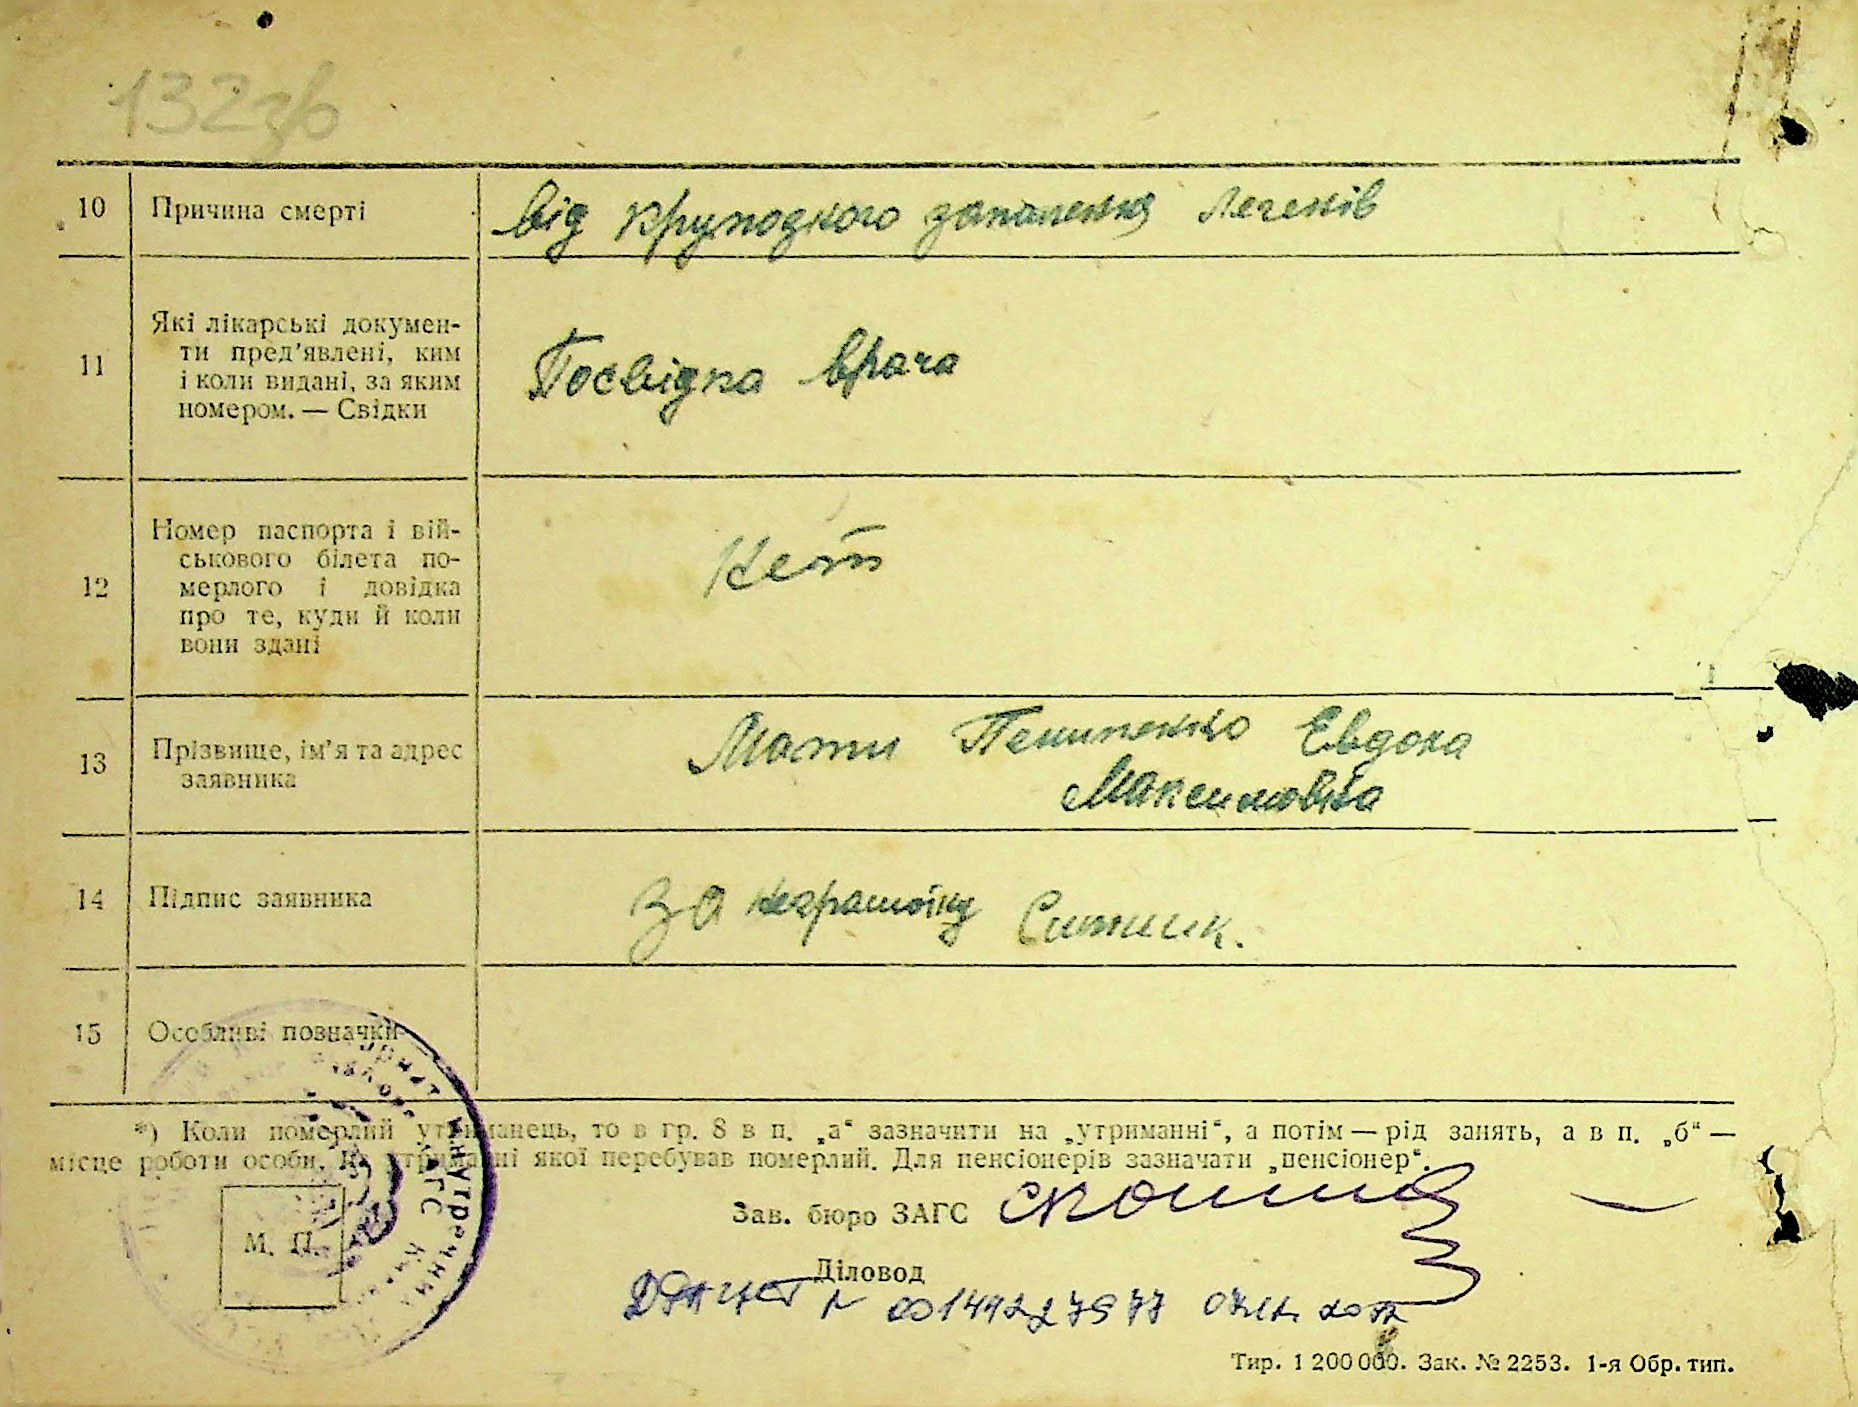 132зв
10 Причина смерті від крупозного запаления легенів
11 Які лікарські докумен-
ти пред'явлені, ким
і коли видані, за яким
номером. — Свідки
Посвідка врача
12 Номер паспорта і вій-
ськового білета по-
мерлого і довідка
про те, куди й коли
вони здані
Нет
13 Прізвище, ім'я та адрес
заявника
Мати Евдоха
Максимовна
14 Підпис заявника За неграмотну Ситник.
15 Особливі позначки
*) Коли померлий утриманець, то в гр. 8 в п. „а“ зазначити на „утриманні“, а потім — рід занять, а в п. „б“ —
місце роботи особи, на утриманні якої перебував померлий. Для пенсіонерів зазначати „пенсіонер“.
Зав. бюро ЗАГС
М. П.
Діловод
N 00149227977
Тир. 1 200 000. Зак. № 2253. 1-я Обр. тип.